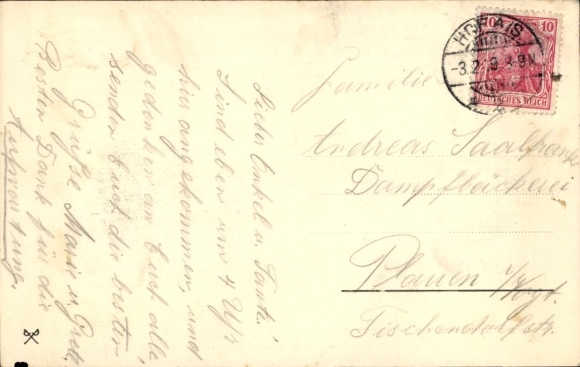 HOF A/S.
-3.2.19 8-9N
10 10
DEUTSCHES REICH
Familie
Andreas Saalfrank
Dampfbäckerei
Plauen i/Vogt.
Tischendorfstr.
Lieber Onkel u. Tante!
Sind eben um 4 Uhr
hier angekommen, und
gedenken an Euch alle,
senden Euch die besten
Grüße Marie u. Gretl.
Besten Dank für die
Aufwartung.